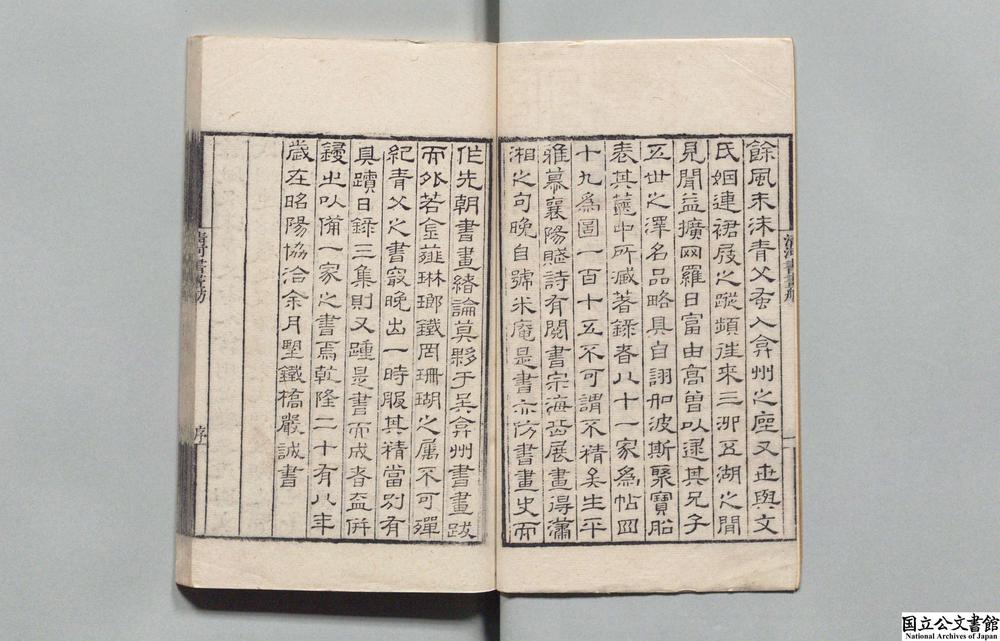 餘風末沫青父蚤入弇州之座又世與文
氏姻連裙屐之蹤頻往來三泖五湖之間
見聞益擴网羅日富由高曾以逮其兄子
五世之澤名品略具自詡如波斯聚寶船
表其篋中所臧著錄者八十一家為帖四
十九為圖一百十五不可謂不精矣生平
雅慕襄陽賸詩有閱書宗海岳展畫得瀟
湘之句晚自號米庵是書亦仿書畫史而
作先朝書畫緒論莫夥于吳弇州書畫跋
而外若金薤琳瑯鐵罔珊瑚之属不可殫
紀青父之書㝡晚出一時服其精當別有
真蹟日錄三集則又踵是書而成者盍併
鋟出以備一家之書焉乾隆二十有八年
歲在昭陽協洽余月望鐵橋嚴誠書
清河書畫舫
序
国立公文書館
National Archives of Japan